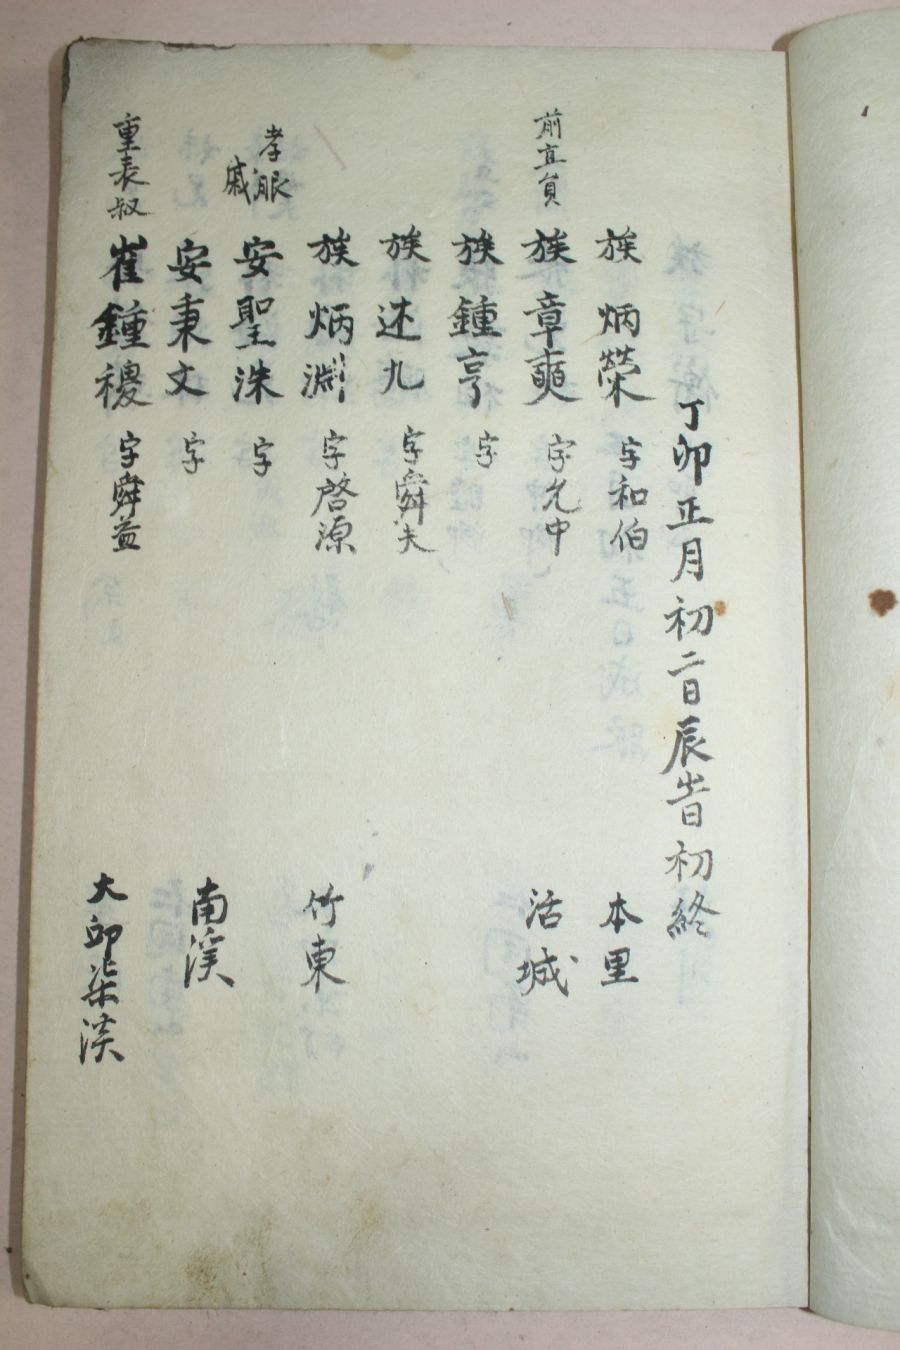 丁卯正月初二日辰旹初終
族 炳榮 字和伯 本里
前直員 族 章奭 字允中 活城
族 鍾亨 字
族 述九 字舜夫
族 炳淵 字啓源 竹東
孝服 戚 安聖洙 字
安秉文 字 南溪
重表叔 崔鍾稷 字舜益 大邱柒溪